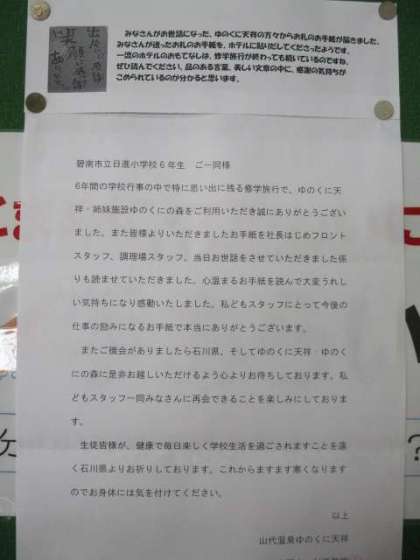 みなさんがお世話になった、ゆのくに天祥の方々からお礼のお手紙が届きました。
みなさんが送ったお礼のお手紙を、ホテルに貼りだしてくださったようです。
一流のホテルのおもてなしは、修学旅行が終わっても続いているのですね。
ぜひ読んでください。品のある言葉、美しい文章の中に、感謝の気持ちが
こめられているのが分かると思います。
碧南市立日進小学校6年生　ご一同様
6年間の学校行事の中で特に思い出に残る修学旅行で、ゆのくに天
祥・姉妹施設ゆのくにの森をご利用いただき誠にありがとうござい
ました。また皆様よりいただきましたお手紙を社長はじめフロント
スタッフ、調理場スタッフ、当日お世話をさせていただきました係
りも読ませていただきました。心温まるお手紙を読んで大変うれし
い気持ちになり感動いたしました。私どもスタッフにとって今後の
仕事の励みになるお手紙で本当にありがとうございます。
またご機会がありましたら石川県、そしてゆのくに天祥・ゆのく
にの森に是非お越しいただけるよう心よりお待ちしております。私
どもスタッフ一同みなさんに再会できることを楽しみにしておりま
す。
生徒皆様が、健康で毎日楽しく学校生活を過ごされますことを遠
く石川県よりお祈りしております。これからますます寒くなります
のでお身体には気を付けてください。
以上
山代温泉ゆのくに天祥